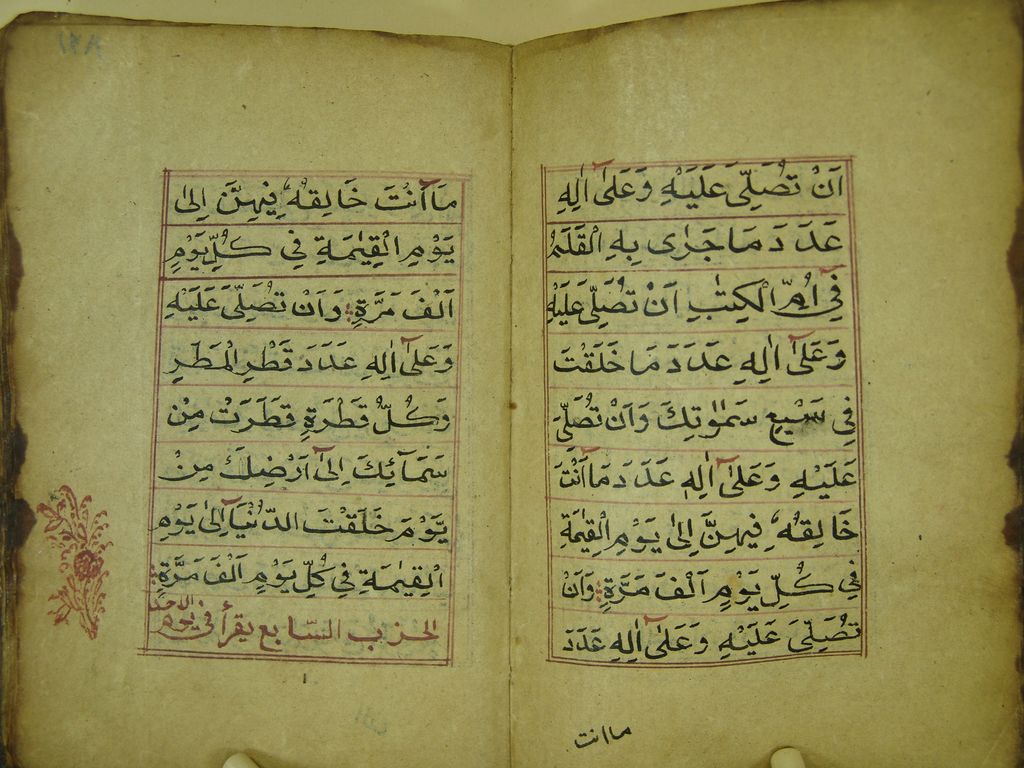 اَنْ تُصَلِّیَ عَلَيْهِ وَعَلٰۤی اٰلِهٖ
عَدَدَ مَا جَرٰی بِهِ الْقَلَمُ
فِیۤ اُمِّ الْكِتٰبِ اَنْ تُصَلِّیَ عَلَيْهِ
وَعَلٰۤی اٰلِهٖ عَدَدَ مَا خَلَقْتَ
فِی سَبْعِ سَمٰوٰتِكَ وَاَنْ تُصَلِّیَ
عَلَيْهِ وَعَلٰۤی اٰلِهٖ عَدَدَ مَاۤ اَنْتَ
خَالِقُهُ فِيهِنَّ اِلٰی يَوْمِ الْقِيٰمَةِ
فِی كُلِّ يَوْمٍ اَلْفَ مَرَّةٍ وَاَنْ
تُصَلِّیَ عَلَيْهِ وَعَلٰۤی اٰلِهٖ عَدَدَ
ما انت
مَاۤ اَنْتَ خَالِقُهُ فِيهِنَّ اِلٰی
يَوْمِ الْقِيٰمَةِ فِی كُلِّ يَوْمٍ
اَلْفَ مَرَّةٍ وَاَنْ تُصَلِّیَ عَلَيْهِ
وَعَلٰۤی اٰلِهٖ عَدَدَ قَطْرِ الْمَطَرِ
وَكُلِّ قَطْرَةٍ قَطَرَتْ مِنْ
سَمَآئِكَ اِلٰۤی اَرْضِكَ مِنْ
يَوْمَ خَلَقْتَ الدُّنْيَاۤ اِلٰی يَوْمِ
الْقِيٰمَةِ فِی كُلِّ يَوْمٍ اَلْفَ مَرَّةٍ
الحزب السّابع يقرأ فی يوم الاحد